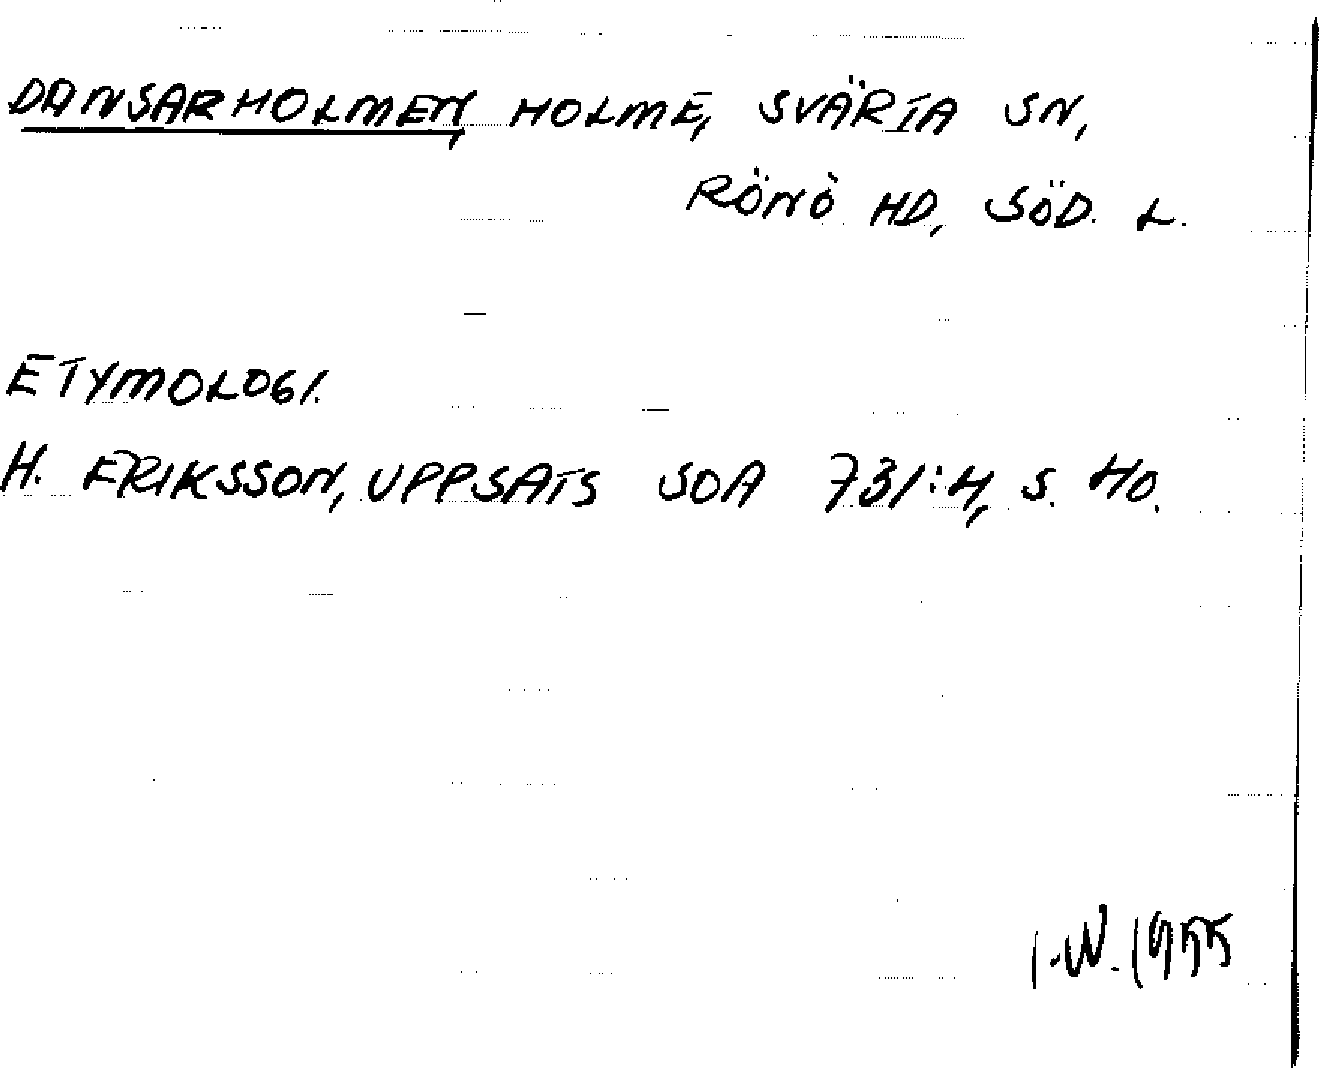 DANSARHOLMEN, HOLME, SVÄRTA SN,
RÖNÖ HD, SÖD. L.
ETYMOLOGI.
H. ERIKSSON, UPPSATS SOA 731:4, S. 40.
I.W. 1955